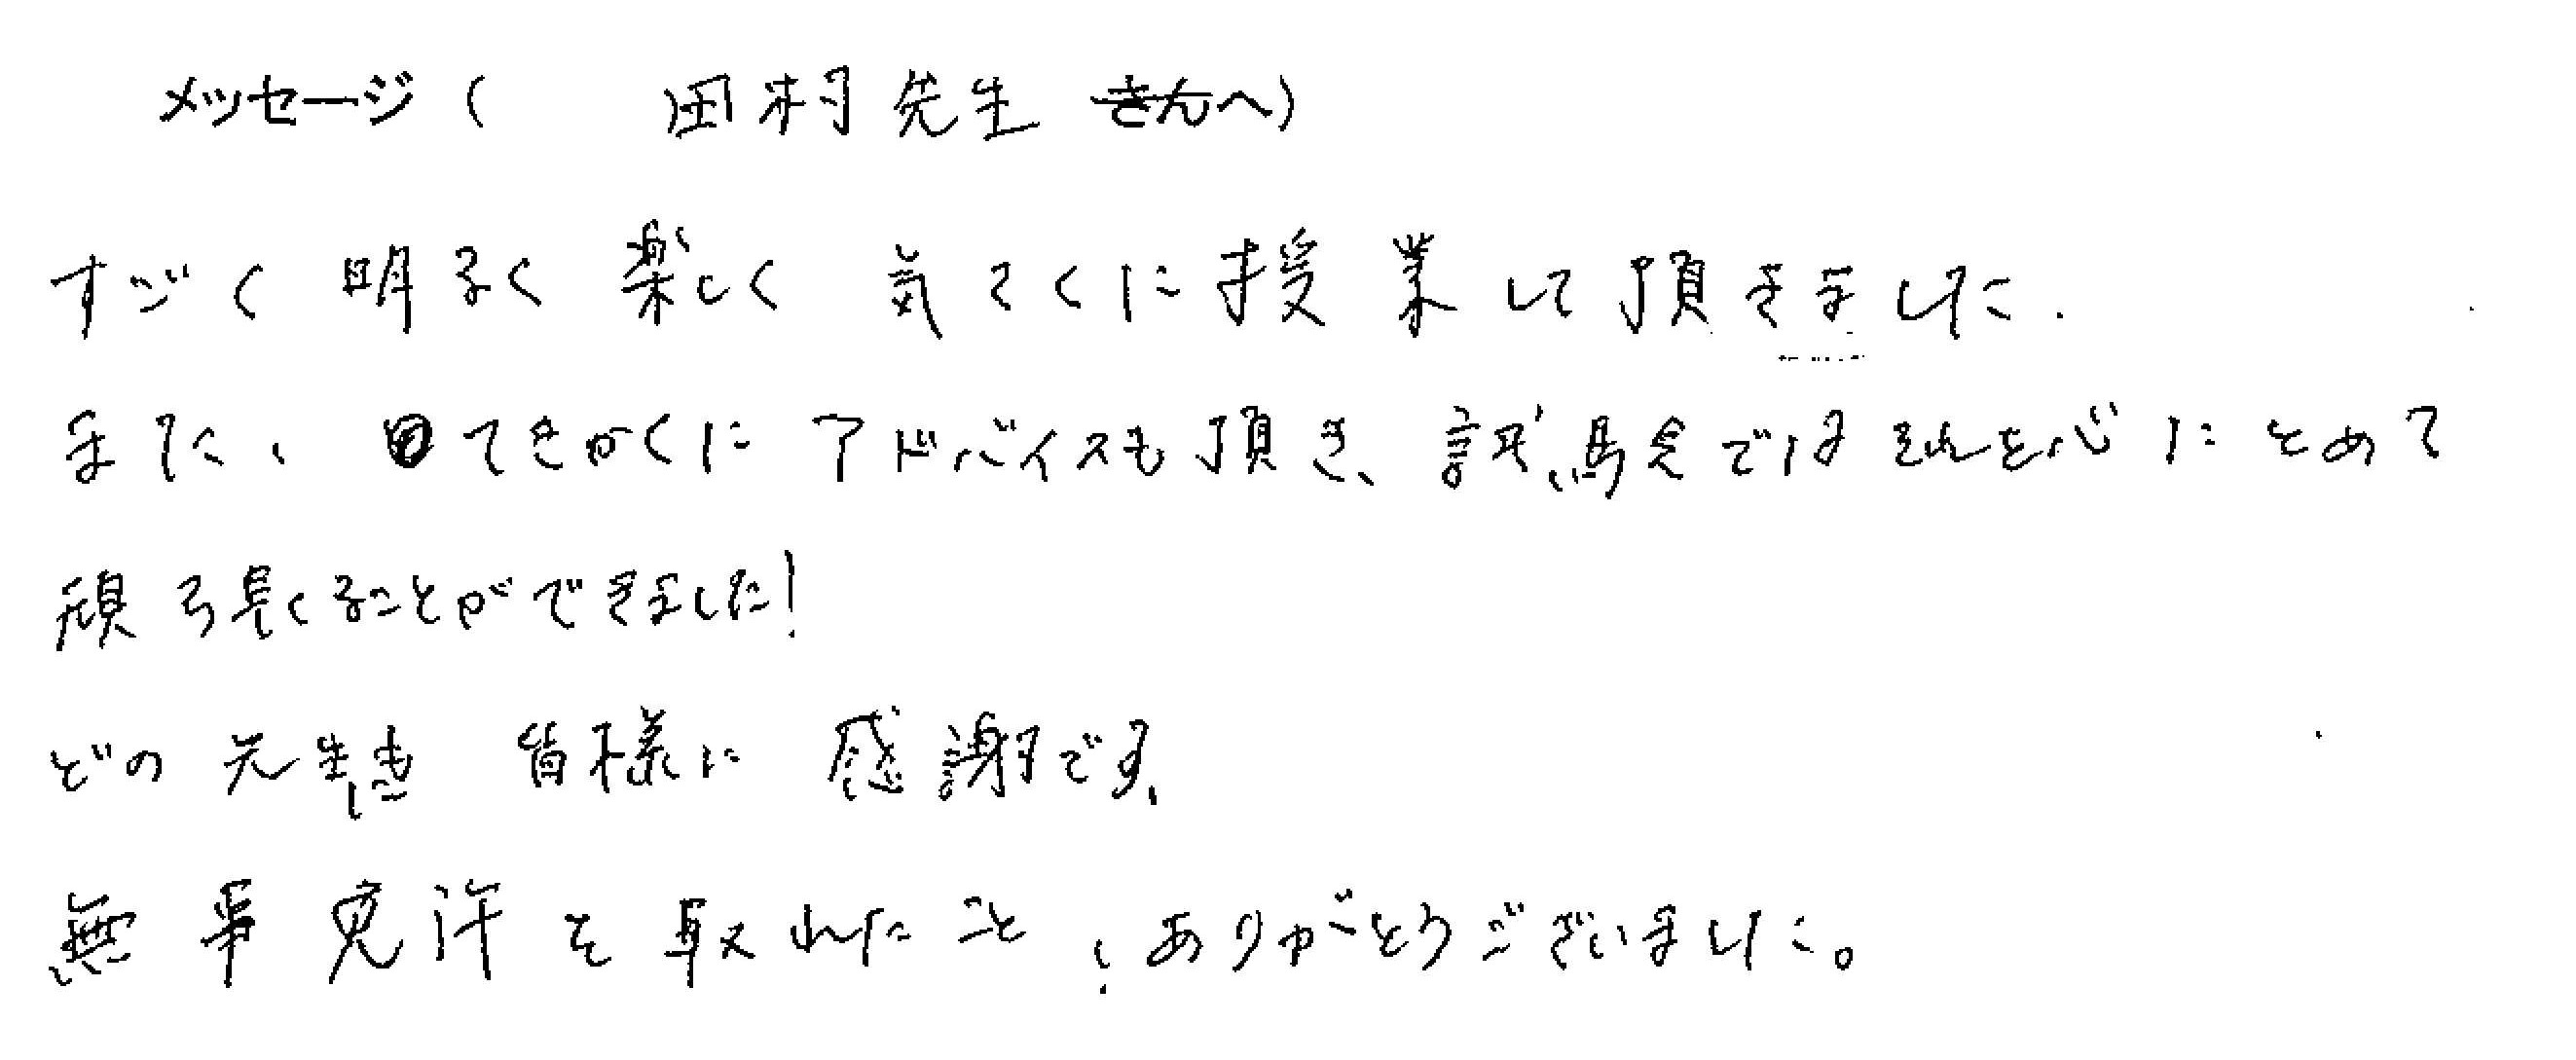 メッセージ( 田村先生 さんへ)
すごく明るく楽しく気さくに授業して頂きました.
また、てきかくにアドバイスも頂き、試験ではそれを心にとめて
頑張ることができました!
どの先生も皆様に感謝です、
無事免許を取れたこと、ありがとうございました。